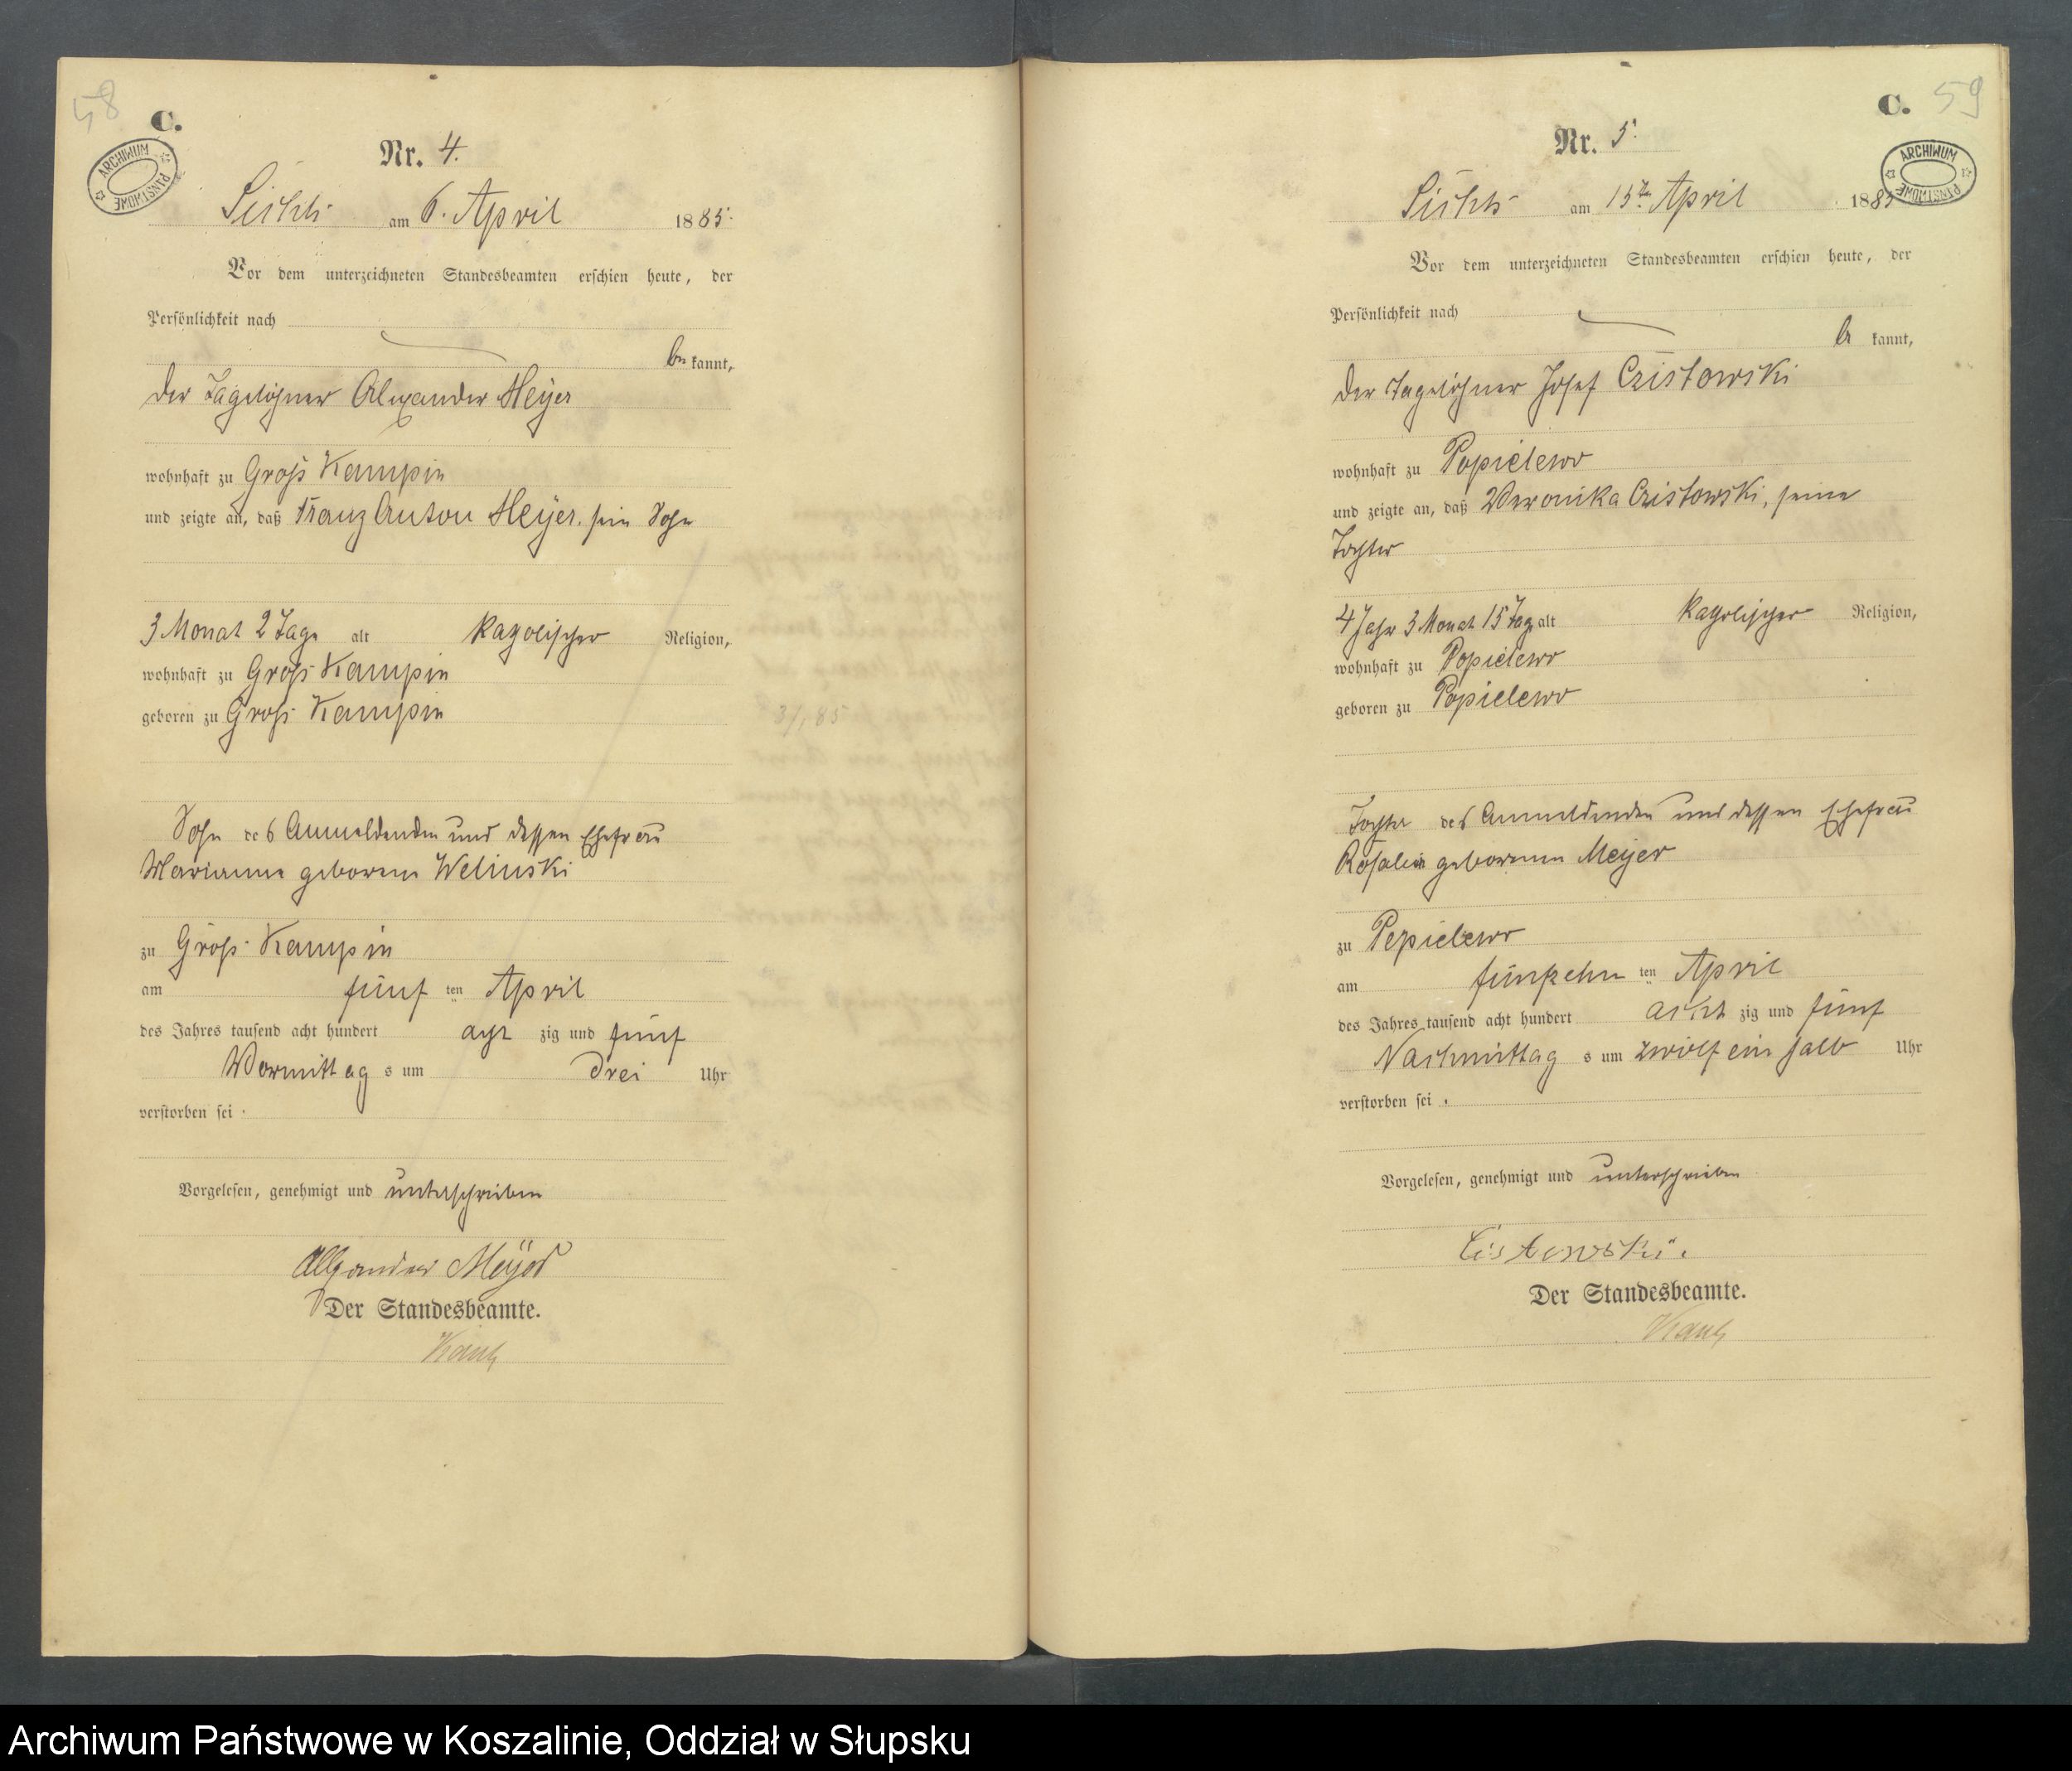 58
C.
ARCHIWUM PAŃSTWOWE
Nr. 4.
am 6. April 1885.
Vor dem unterzeichneten Standesbeamten erschien heute, der
Persönlichkeit nach
be kannt,
der Tagelöhner Alexander Meyer
wohnhaft zu Groß Kampin
und zeigte an, daß Franz Anton Meyer, sein Sohn
3 Monat 2 Tage alt katholischer Religion,
wohnhaft zu Groß Kampin
geboren zu Groß Kampin
3/1 85
Sohn des Anmeldenden und dessen Ehefrau
Marianne geborene Welinski
zu Groß Kampin
am fünf ten April
des Jahres tausend acht hundert acht zig und fünf
Vormittag s um drei Uhr
verstorben sei.
Vorgelesen, genehmigt und unterschrieben
Alexander Meyer
Der Standesbeamte.
C. 59
ARCHIWUM PAŃSTWOWE
Nr. 5.
am 15ten April 1885
Vor dem unterzeichneten Standesbeamten erschien heute, der
Persönlichkeit nach
be kannt,
der Tagelöhner Josef Czistowski
wohnhaft zu Popielewo
und zeigte an, daß Veronika Czistowski, seine
Tochter
4 Jahr 3 Monat 15 Tag alt katholischer Religion,
wohnhaft zu Popielewo
geboren zu Popielewo
Tochter des Anmeldenden und dessen Ehefrau
Rosalia geborenen Meyer
zu Popielewo
am fünfzehn ten April
des Jahres tausend acht hundert acht zig und fünf
Nachmittag s um zwölf ein halb Uhr
verstorben sei.
Vorgelesen, genehmigt und unterschrieben
Cistowski.
Der Standesbeamte.
Archiwum Państwowe w Koszalinie, Oddział w Słupsku